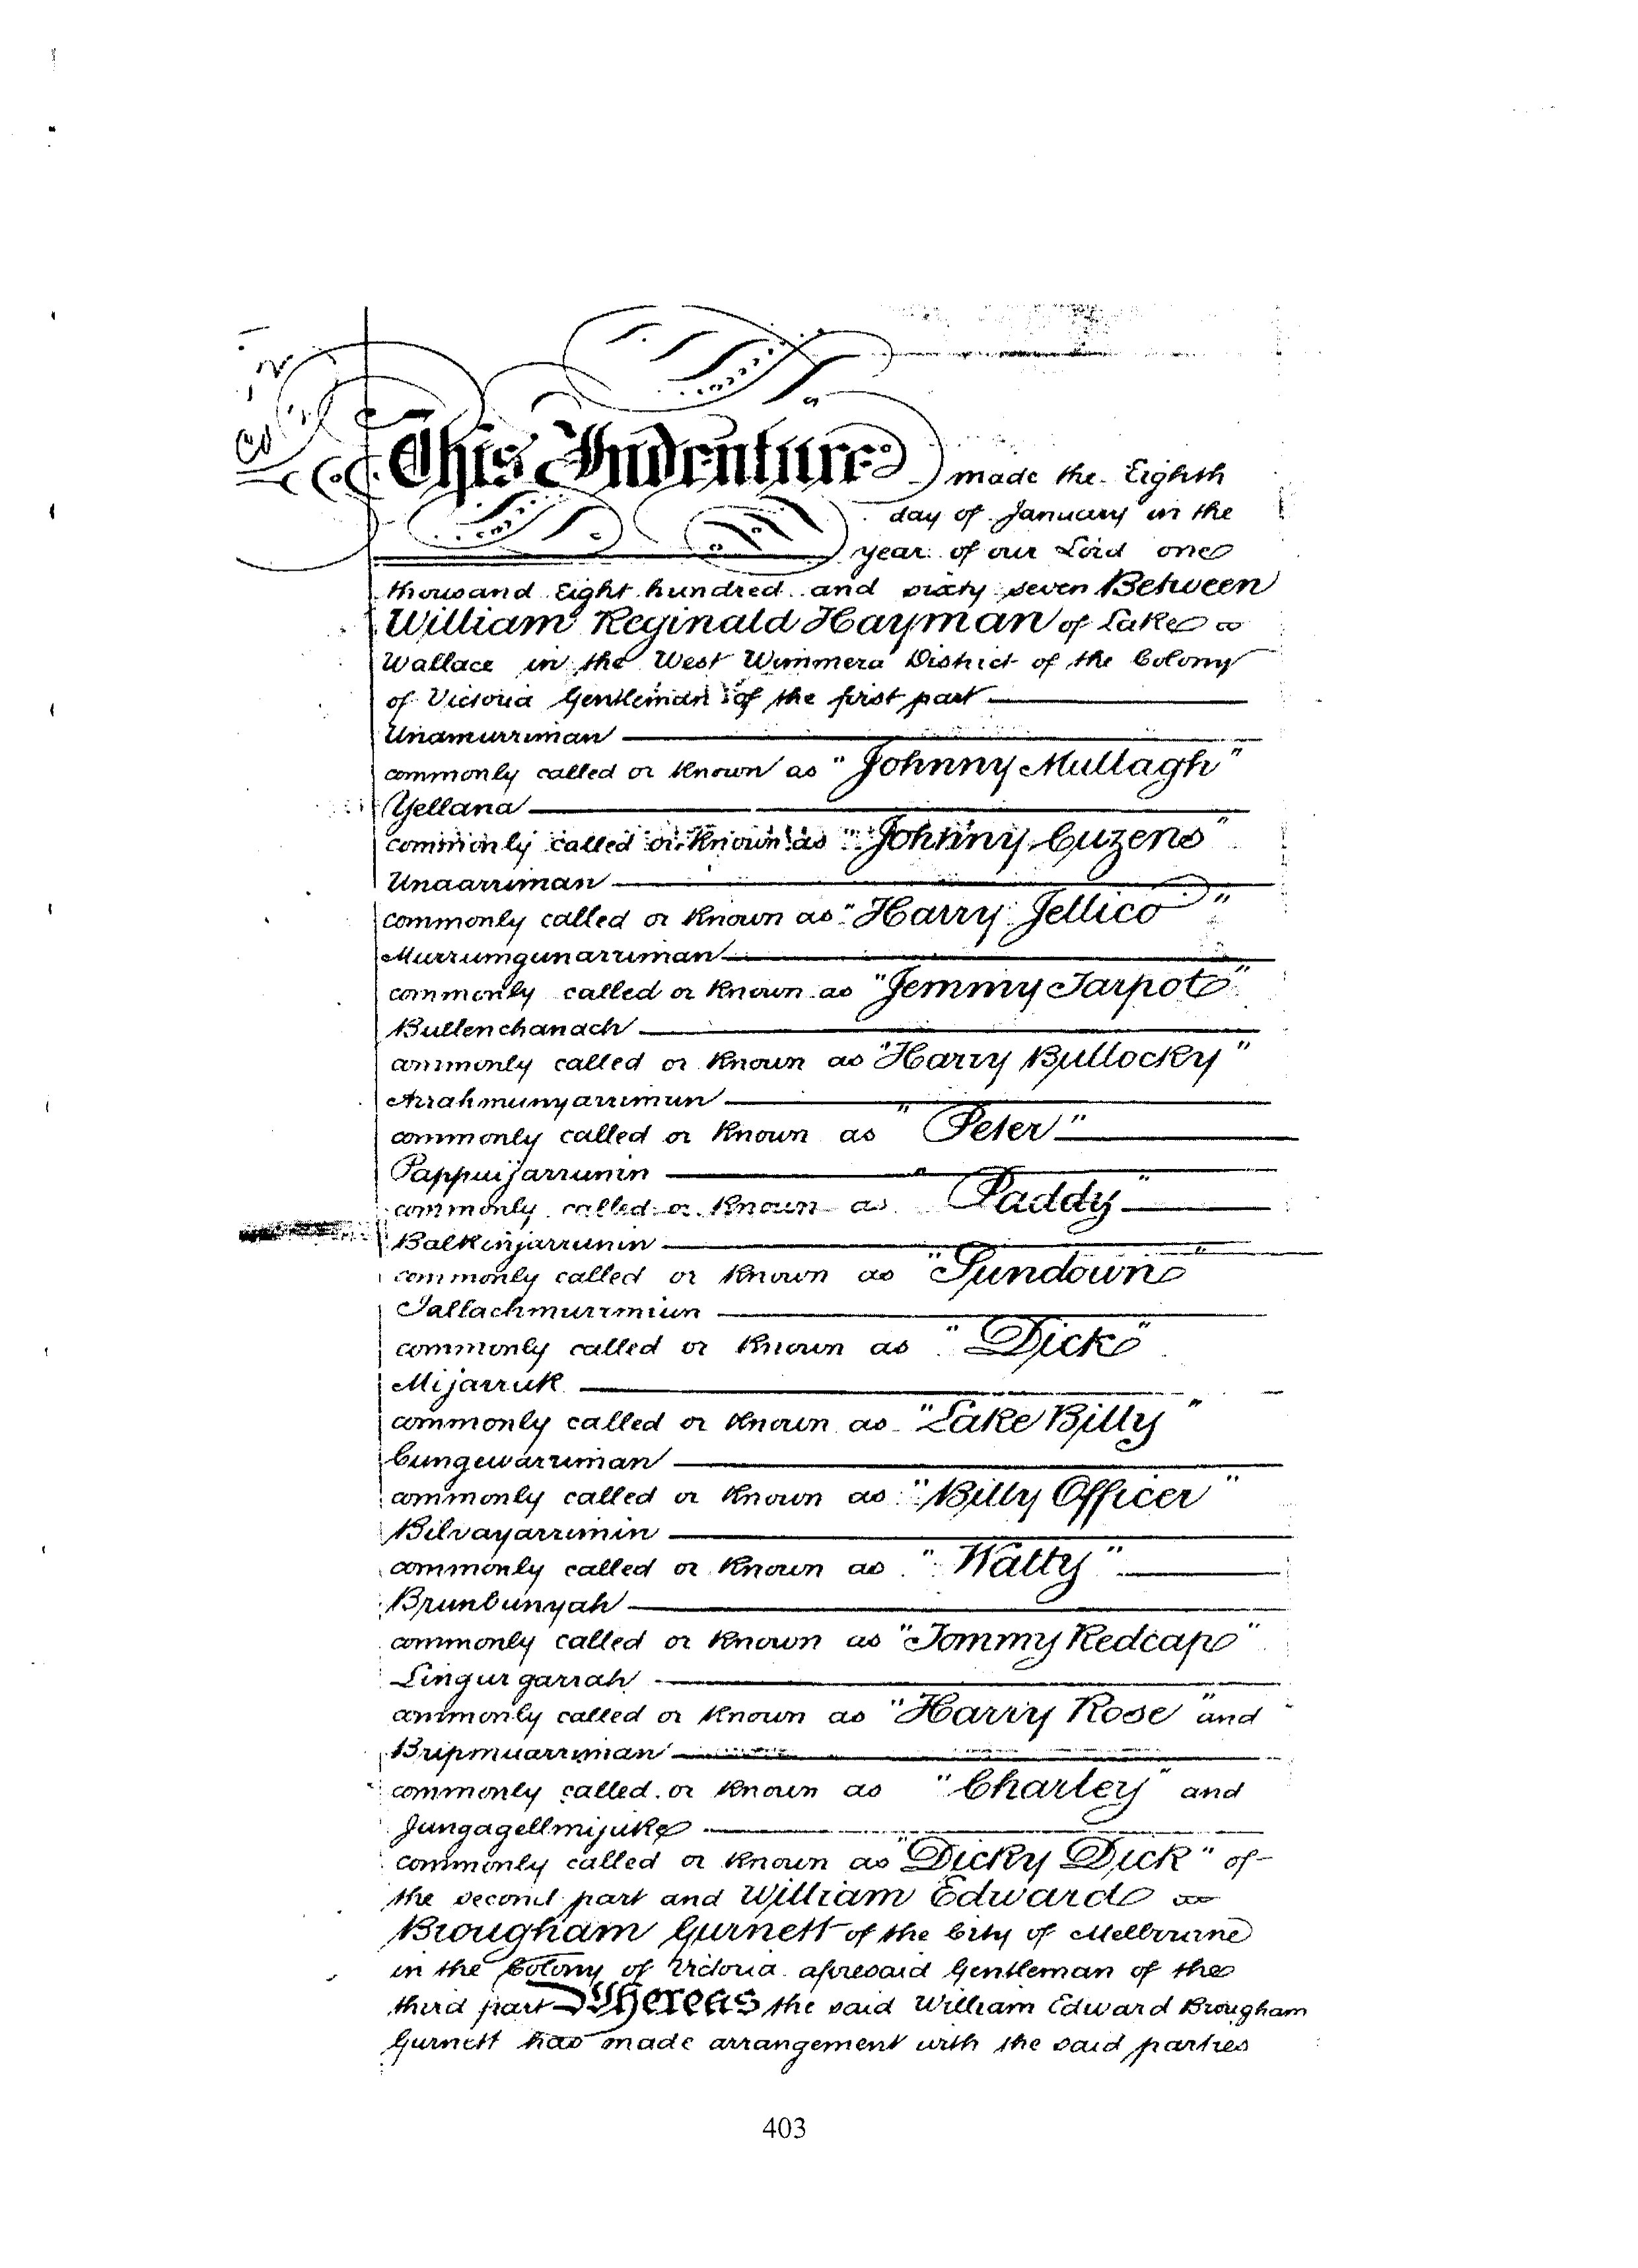 This Indenture made the Eighth
day of January in the
year of our Lord one
thousand Eight hundred and sixty seven Between
William Reginald Hayman of Lake
Wallace in the West Wimmera District of the Colony
of Victoria Gentleman of the first part
Unamurriman
commonly called or known as "Johnny Mullagh"
Yellana
commonly called or known as "Johnny Cuzens"
Unaarriman
commonly called or known as "Harry Jellico"
Murrumgunarriman
commonly called or known as "Jemmy Tarpot"
Bullenchanach
commonly called or known as "Harry Bullocky"
Arrahmunyarrimun
commonly called or known as "Peter"
Pappuijarrumin
commonly called or known as "Paddy"
Balkinjarrumin
commonly called or known as "Sundown"
Tallachmurrmiun
commonly called or known as "Dick"
Mijarruk
commonly called or known as "Lake Billy"
Cungewarriman
commonly called or known as "Billy Officer"
Bilvayarrimin
commonly called or known as "Watty"
Brunbunyah
commonly called or known as "Tommy Redcap"
Lingurgarrah
commonly called or known as "Harry Rose" and
Bripmuarriman
commonly called or known as "Charley" and
Jungagellmijuke
commonly called or known as "Dicky Dick" of
the second part and William Edward
Brougham Gurnett of the City of Melbourne
in the Colony of Victoria aforesaid Gentleman of the
third part Whereas the said William Edward Brougham
Gurnett has made arrangement with the said parties
403